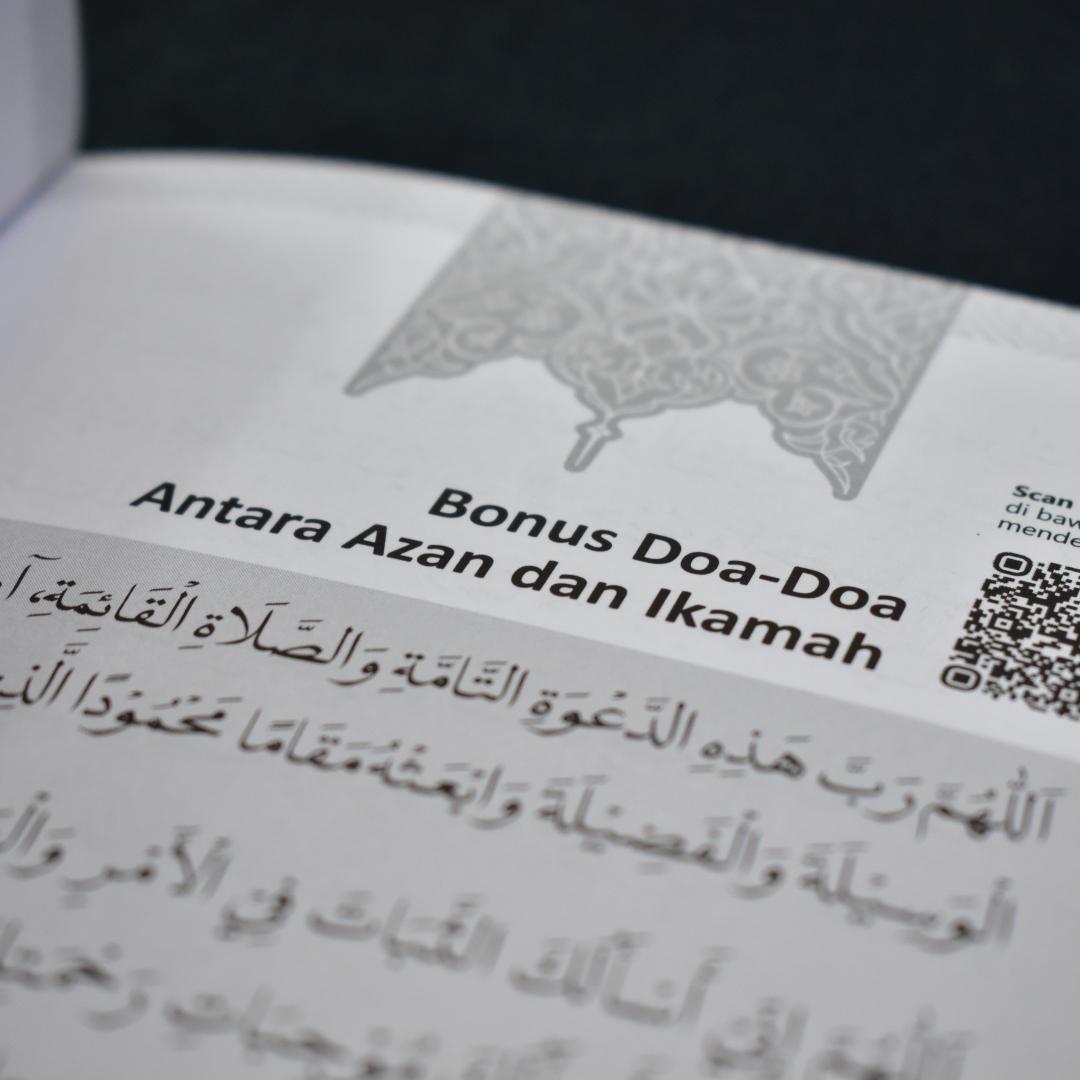 Bonus Doa-Doa
Antara Azan dan Ikamah
Scan
di baw
mende
اَللّٰهُمَّ رَبَّ هَذِهِ الدَّعْوَةِ التَّامَّةِ وَالصَّلَاةِ الْقَائِمَةِ، آ
الْوَسِيْلَةَ وَالْفَضِيْلَةَ وَابْعَثْهُ مَقَامًا مَحْمُوْدًا الَّذِ
اَللّٰهُمَّ إِنِّي أَسْأَلُكَ الثَّبَاتَ فِي الْأَمْرِ وَالْ
رَحْمَتِ